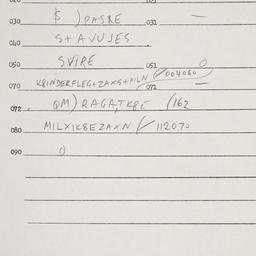 030 $ ) PASRE 031 —
040 S+AVUJES
050 SVIRE 051 0
070 K8INDERFLEG+ZAXS+MLN (/004060 071 —
072 QM) RAGA,TK8E (162
080 MILXIK8EZAXN (/112070
090 0